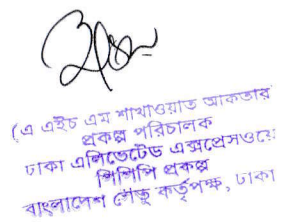 (এ এইচ এম শাখাওয়াত আকতার
প্রকল্প পরিচালক
ঢাকা এলিভেটেড এক্সপ্রেসওয়ে
পিপিপি প্রকল্প
বাংলাদেশ সেতু কর্তৃপক্ষ, ঢাকা